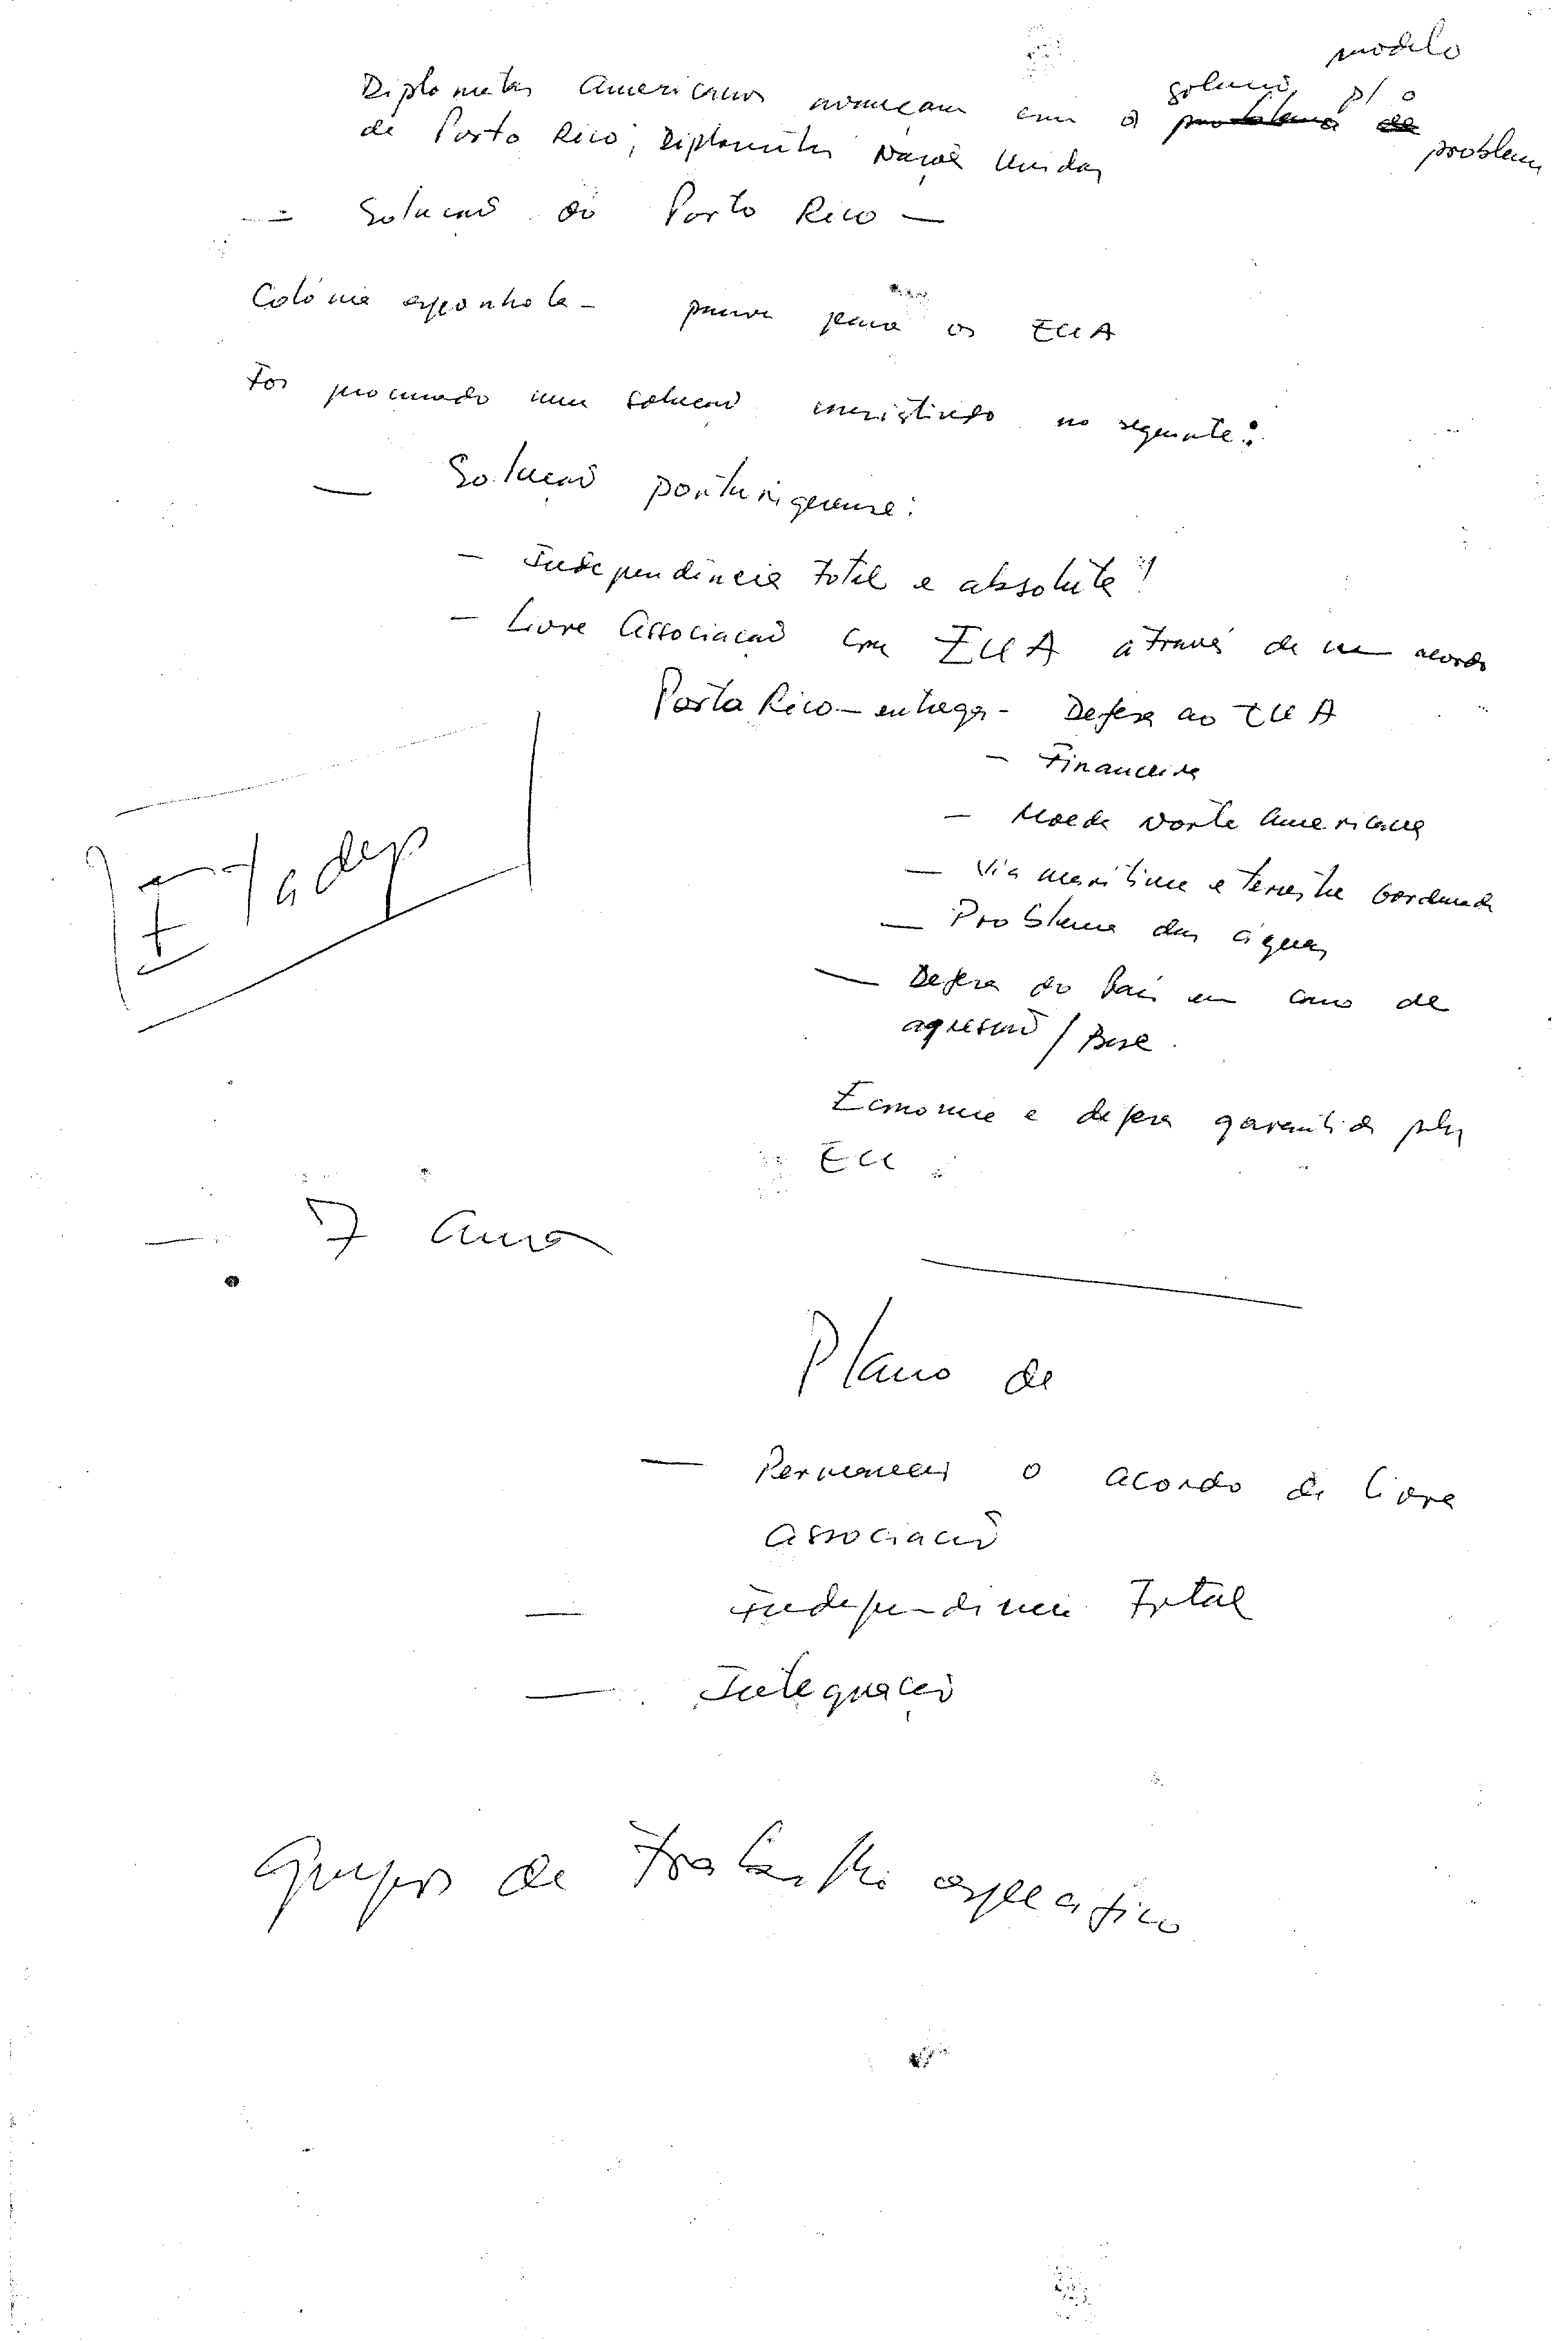 modelo
solução p/ o
Diplomatas Americanos avançam com a problema de problema
de Porto Rico, Diplomatas Nações Unidas
– Solução do Porto Rico –
Colónia espanhola – passou para os EUA
Foi procurado uma solução consistindo no seguinte:
– Solução porturiquense:
– Independência total e absoluta
– Livre Associação com EUA através de um acordo
Porto Rico – entrega – Defesa ao EUA
– Financeira
– Moeda Norte Americana
– Via maritima e terrestre
– Problema das águas
– Defesa do País em caso de
agressão / Base.
Economia e defesa garantida pelos
EU
– 7 anos
Plano de
– Permanecer o acordo de livre
associação
– Independencia Total
– Integração
Grupos de Trabalho especifico